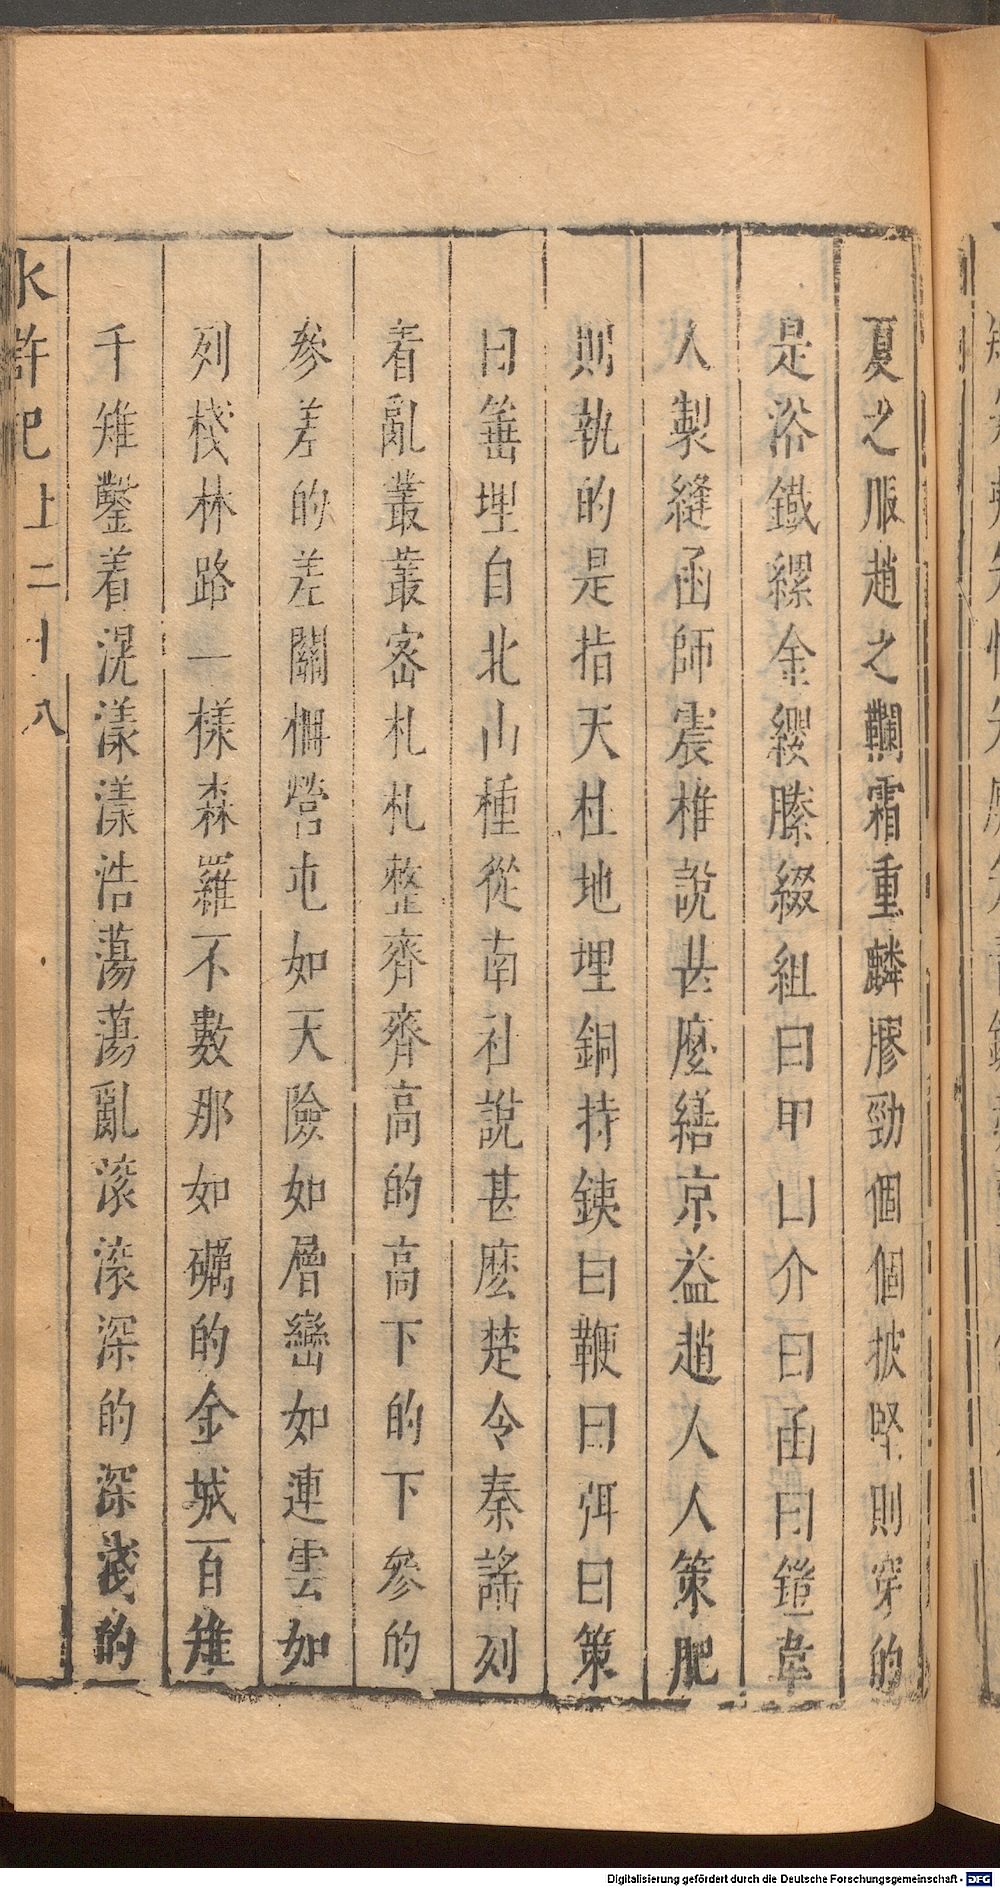 夏之服趙之韊霜重麟膠勁個個披堅則穿的
是浴鐵縲金纓縢綴組曰甲曰介曰函曰鎧韋
人製縫函師震椎說甚麼繕京益趙人人策肥
則執的是指天柱地埋銅持鋏曰鞭曰弭曰策
曰箠埋自北山種從南社說甚麼楚令秦謠列
着亂叢叢密札札整齊齊高的高下的下參的
參差的差關柵營屯如天險如層巒如連雲如
列棧林路一樣森羅不數那如礪的金城百雉
千雉鑿着滉漾漾浩蕩蕩亂滚滚深的深淺的
水滸記上二十八
Digitalisierung gefördert durch die Deutsche Forschungsgemeinschaft - DFG